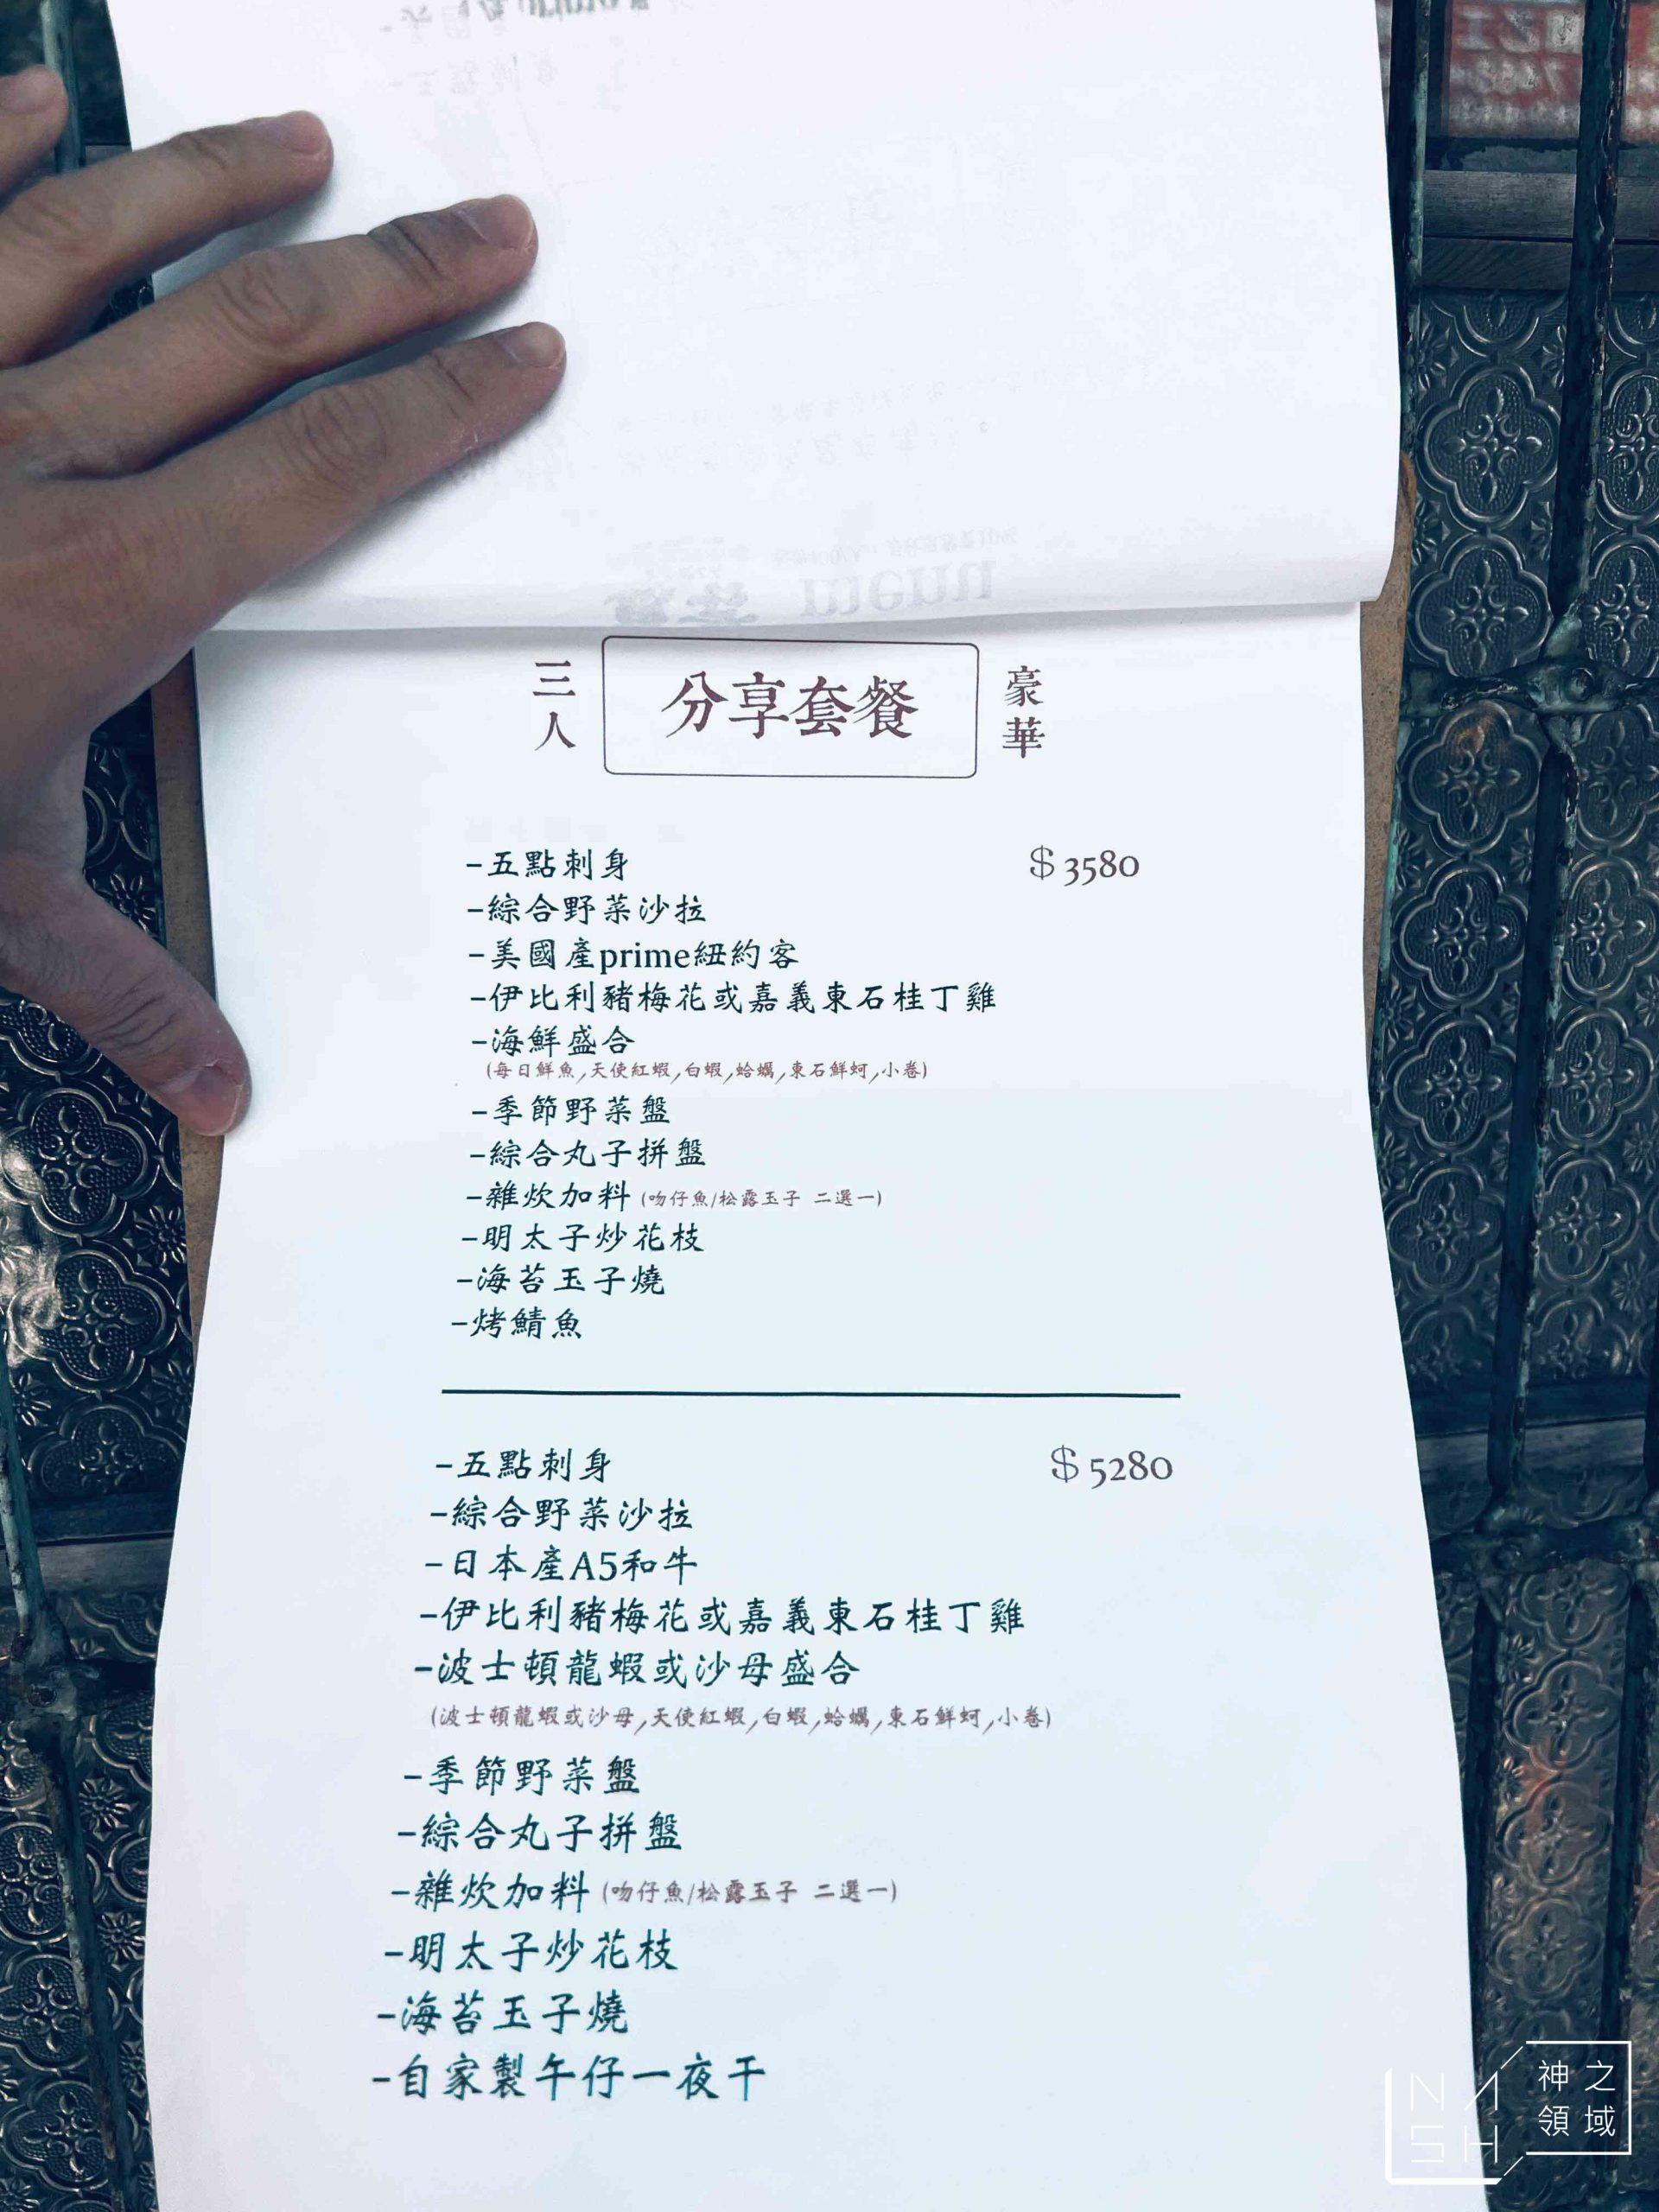 menu
三人 分享套餐 豪華
-五點刺身 $3580
-綜合野菜沙拉
-美國產prime紐約客
-伊比利豬梅花或嘉義東石桂丁雞
-海鮮盛合
(每日鮮魚,天使紅蝦,白蝦,蛤蠣,東石鮮蚵,小卷)
-季節野菜盤
-綜合丸子拼盤
-雜炊加料(吻仔魚/松露玉子 二選一)
-明太子炒花枝
-海苔玉子燒
-烤鯖魚
-五點刺身 $5280
-綜合野菜沙拉
-日本產A5和牛
-伊比利豬梅花或嘉義東石桂丁雞
-波士頓龍蝦或沙母盛合
(波士頓龍蝦或沙母,天使紅蝦,白蝦,蛤蠣,東石鮮蚵,小卷)
-季節野菜盤
-綜合丸子拼盤
-雜炊加料(吻仔魚/松露玉子 二選一)
-明太子炒花枝
-海苔玉子燒
-自家製午仔一夜干
NASH
神之領域